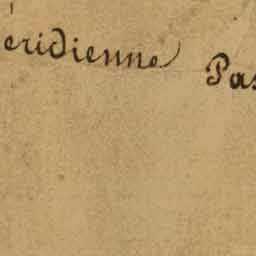 éridienne Pas